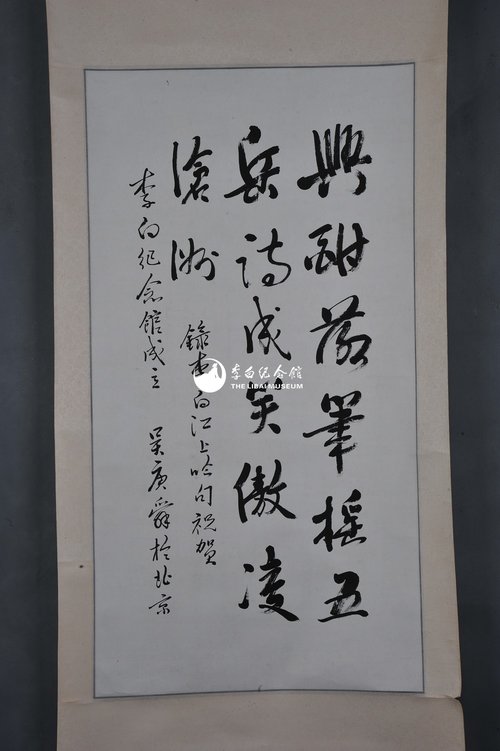 興酣落筆摇五
岳詩成笑傲凌
滄洲
錄李白江上吟句祝賀
李白纪念館成立 吴庚舜於北京
李白纪念館
THE LIBAI MUSEUM